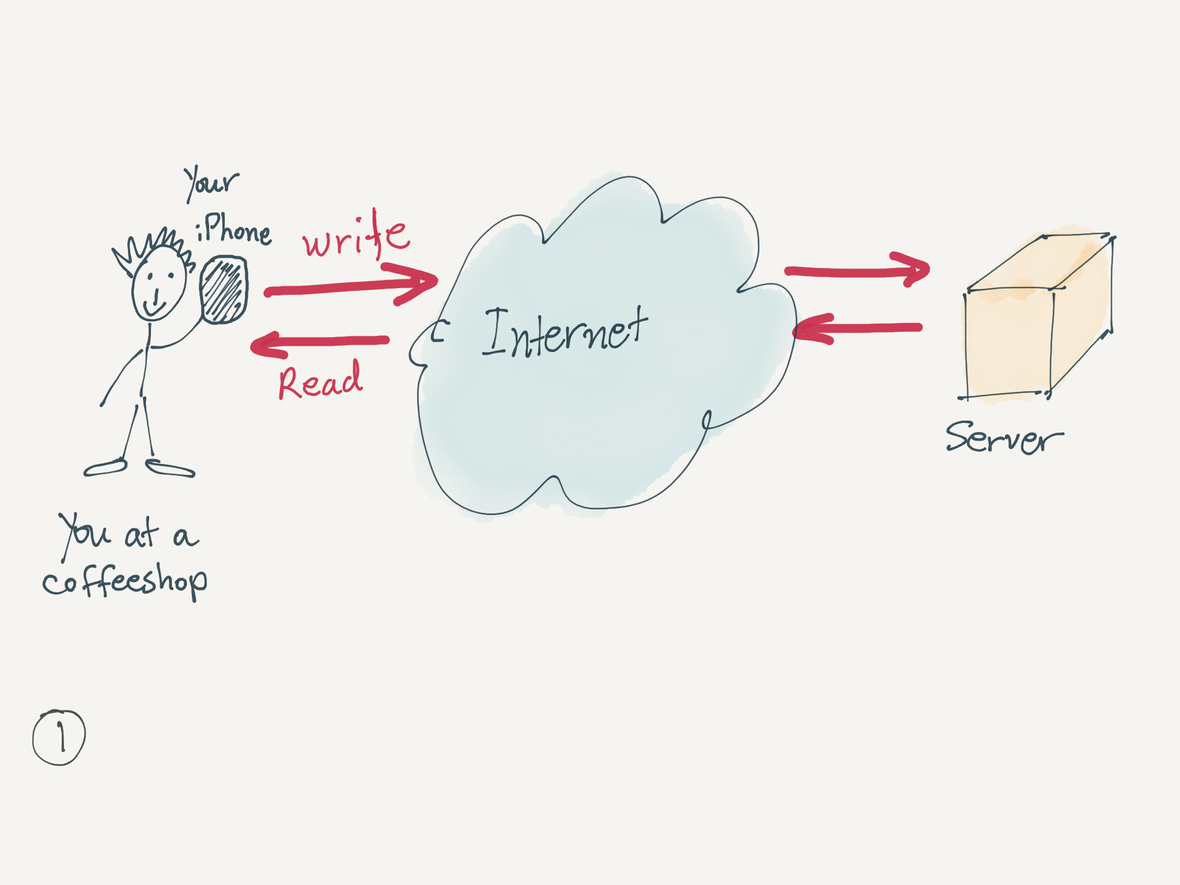 Your
iPhone
write
Read
Internet
Server
You at a
coffeeshop
1